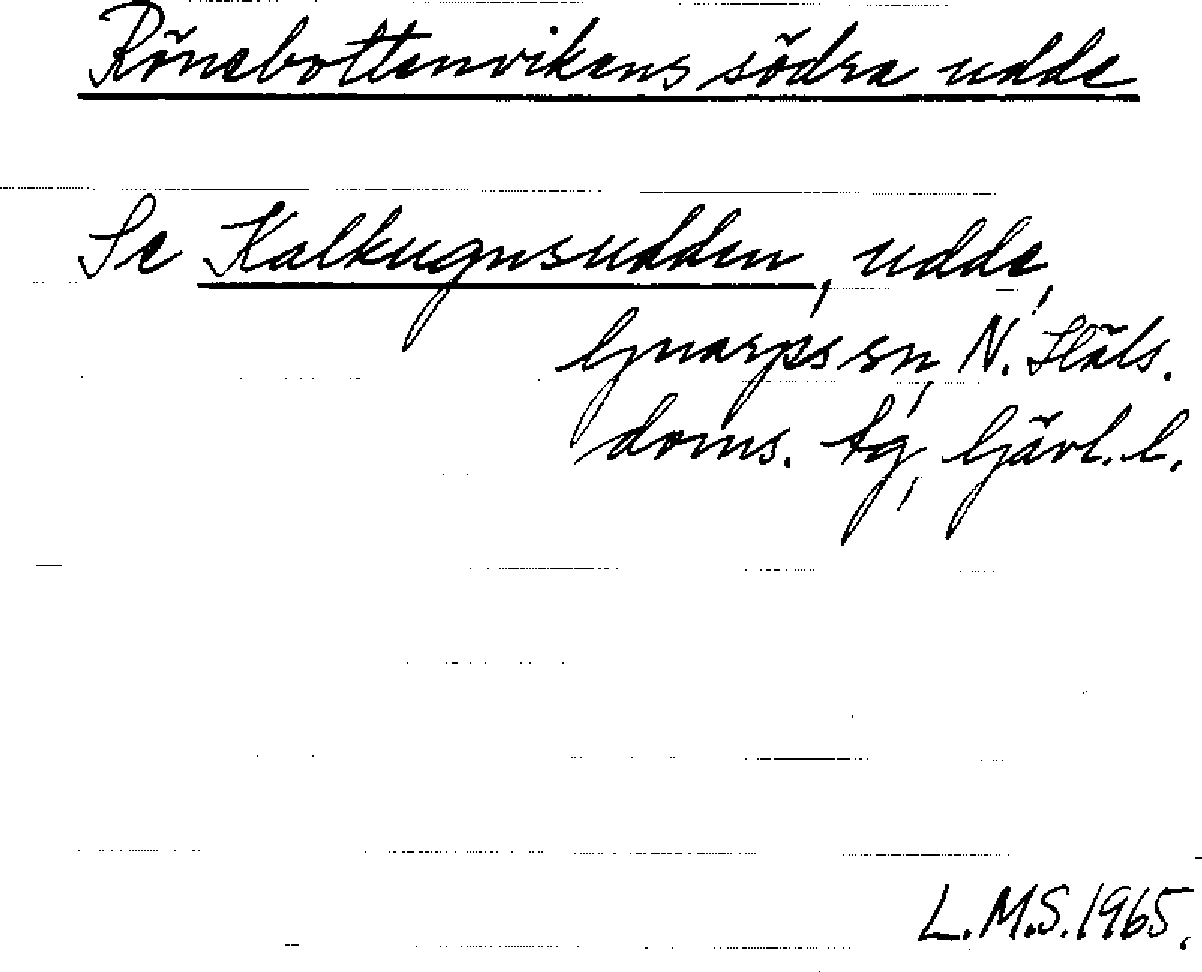 Rönebottenvikens södra udde
Se Kalkugnsudden, udde,
Gnarps sn, N. Häls.
doms. tg, Gävl. l.
L.M.S. 1965.